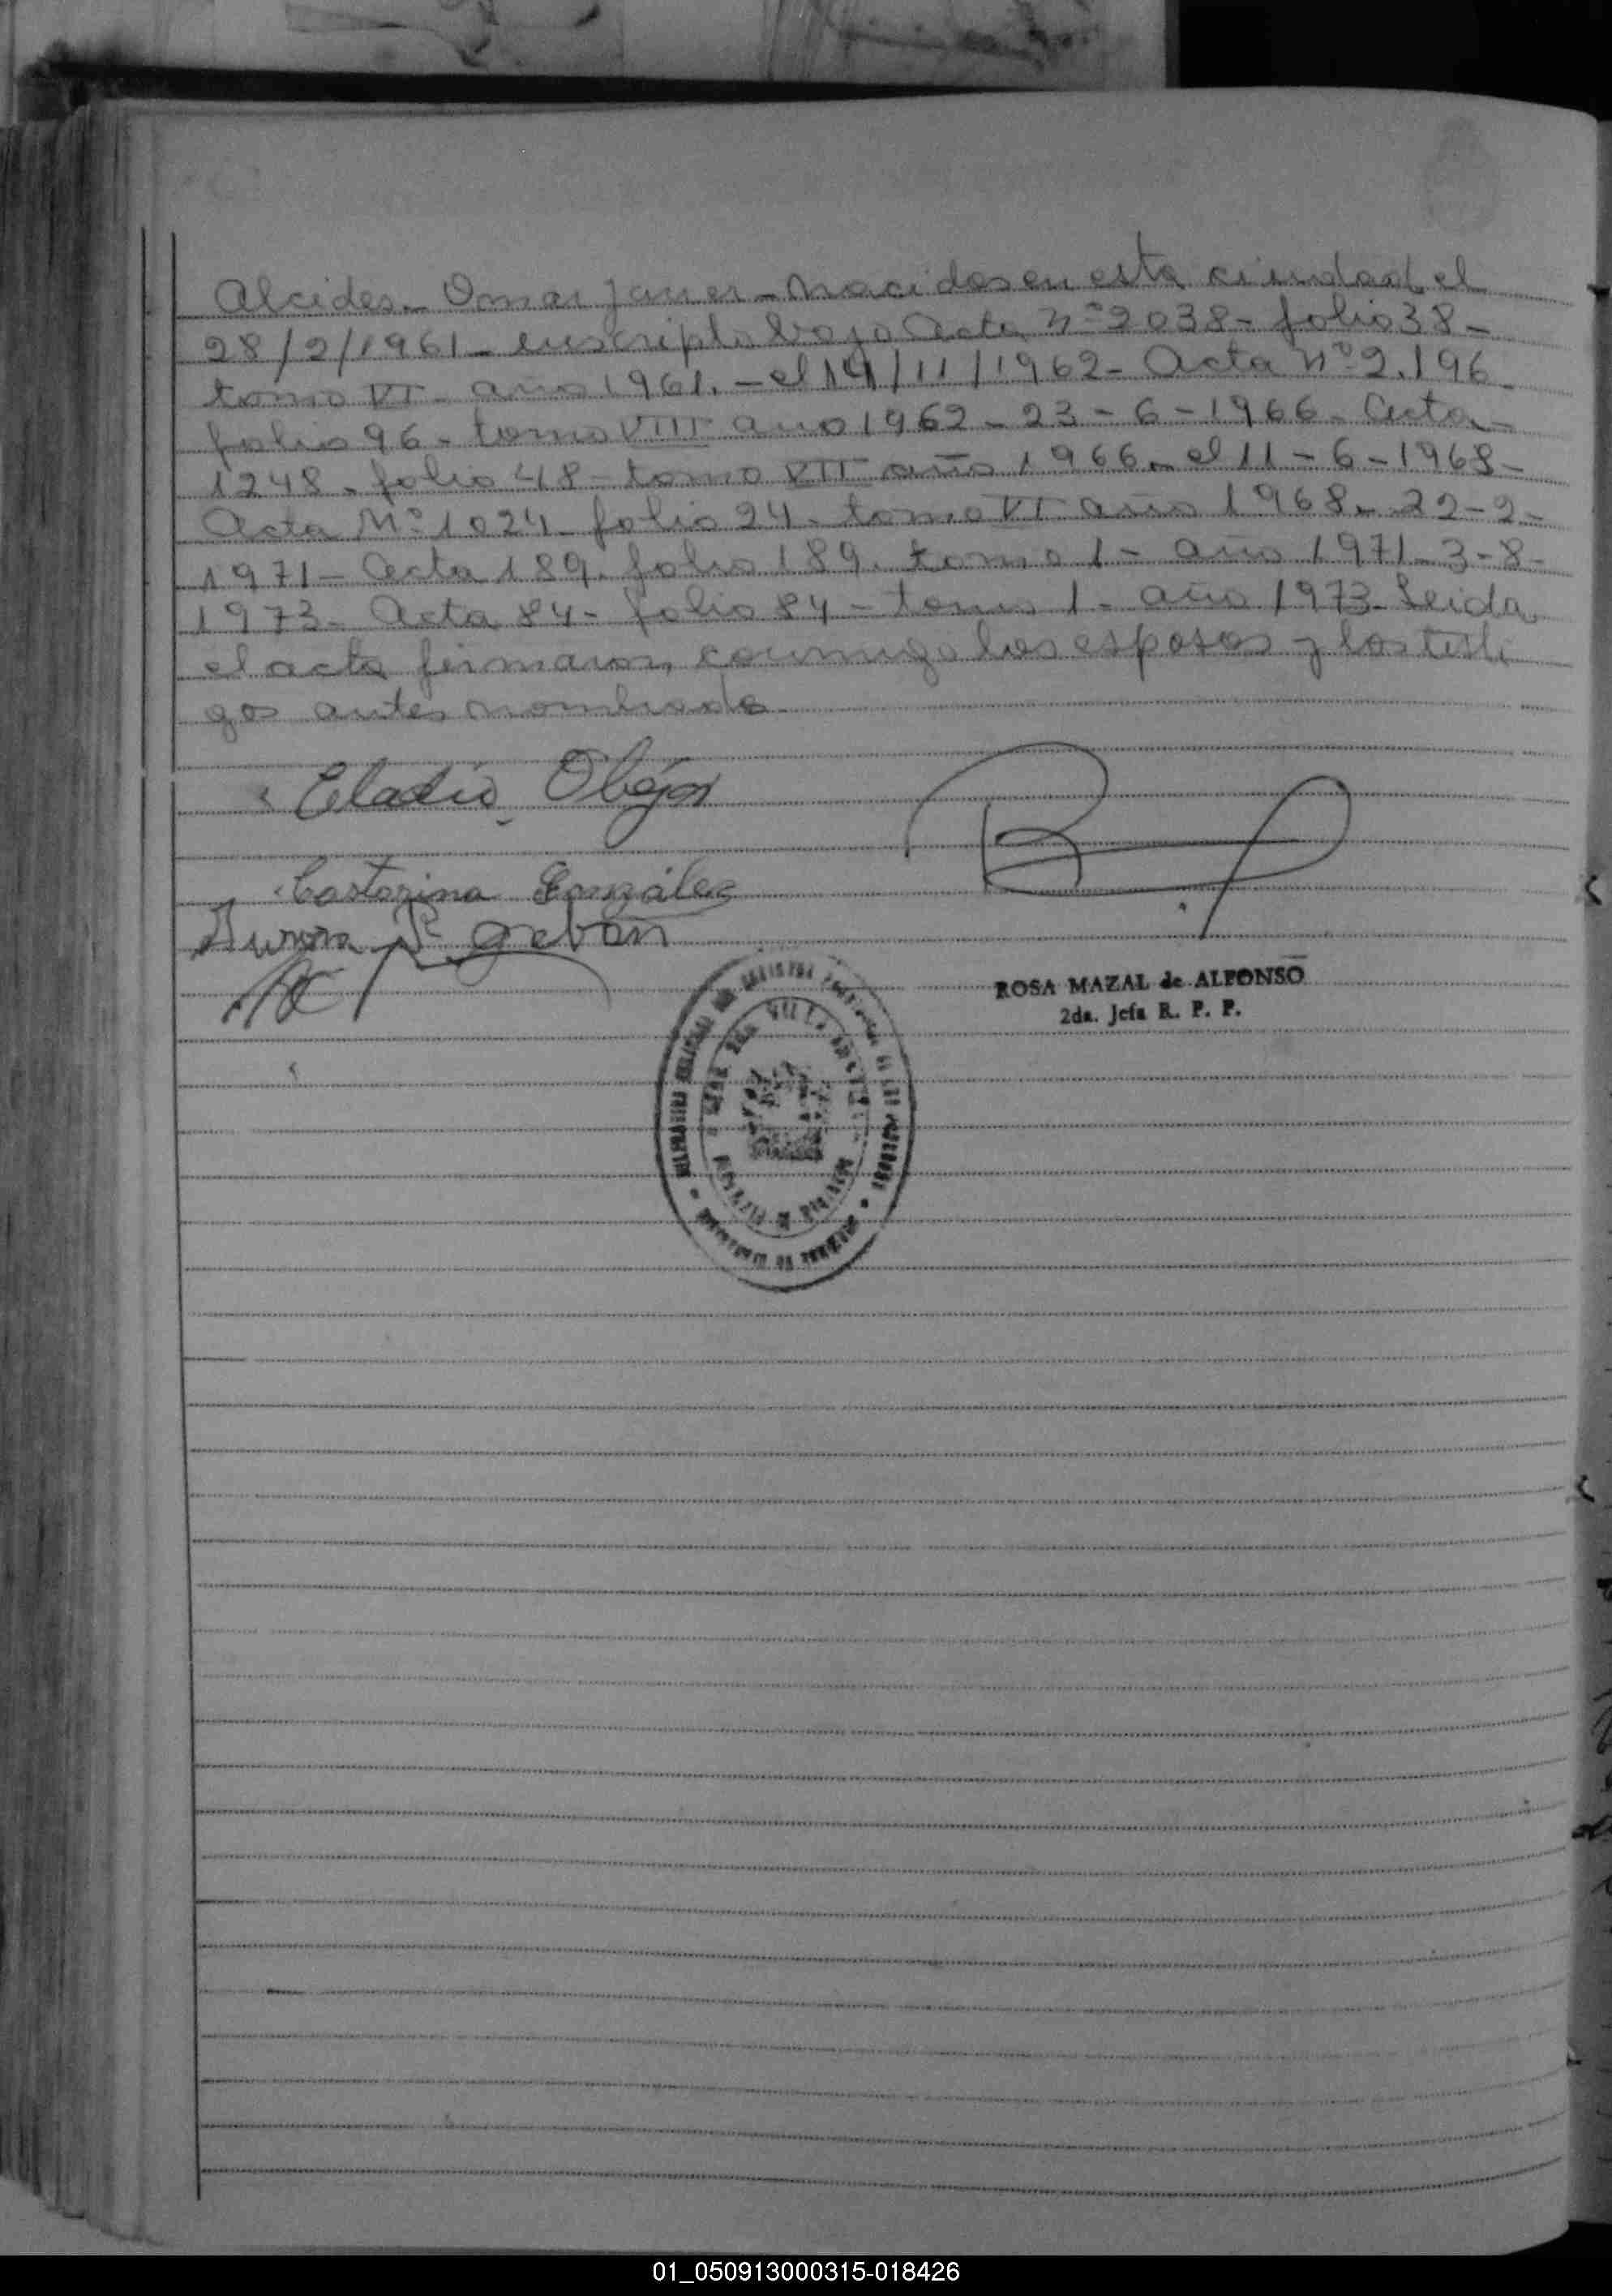 Alcides - Omar Javier - Nacidos en esta ciudad el
28/2/1961 - inscripto bajo acta nº 2038 - folio 38 -
tomo VI - año 1961. - el 14/11/1962 - Acta nº 2.196
folio 96 - tomo VIII año 1962 - 23 - 6 - 1966 - Acta -
1248 - folio 48 - tomo VII año 1966 - el 11 - 6 - 1968 -
Acta Nº 1024 - folio 24 - tomo VI año 1968 - 22 - 2 -
1971 - Acta 189. folio 189. tomo 1 - año 1971 - 3 - 8 -
1973 - Acta 84 - folio 84 - tomo 1 - año 1973 - Leida
el acta firmaron conmigo los esposos y los testi
gos antes nombrados
Eladio
Castorina González
Aurora
ROSA MAZAL de ALFONSO
2da. Jefa R. P. P.
01_050913000315-018426